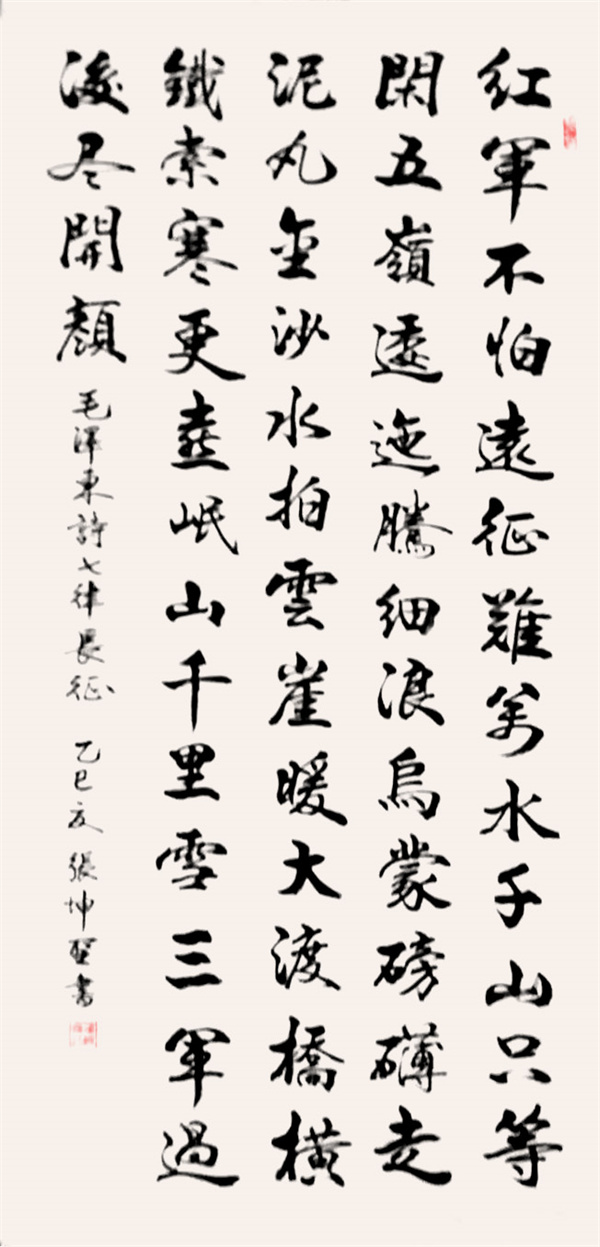 紅軍不怕遠征難萬水千山只等
閑五嶺逶迤騰細浪烏蒙磅礴走
泥丸金沙水拍雲崖暖大渡橋橫
鐵索寒更喜岷山千里雪三軍過
後尽開顏
毛澤東詩七律長征 乙巳夏張坤書